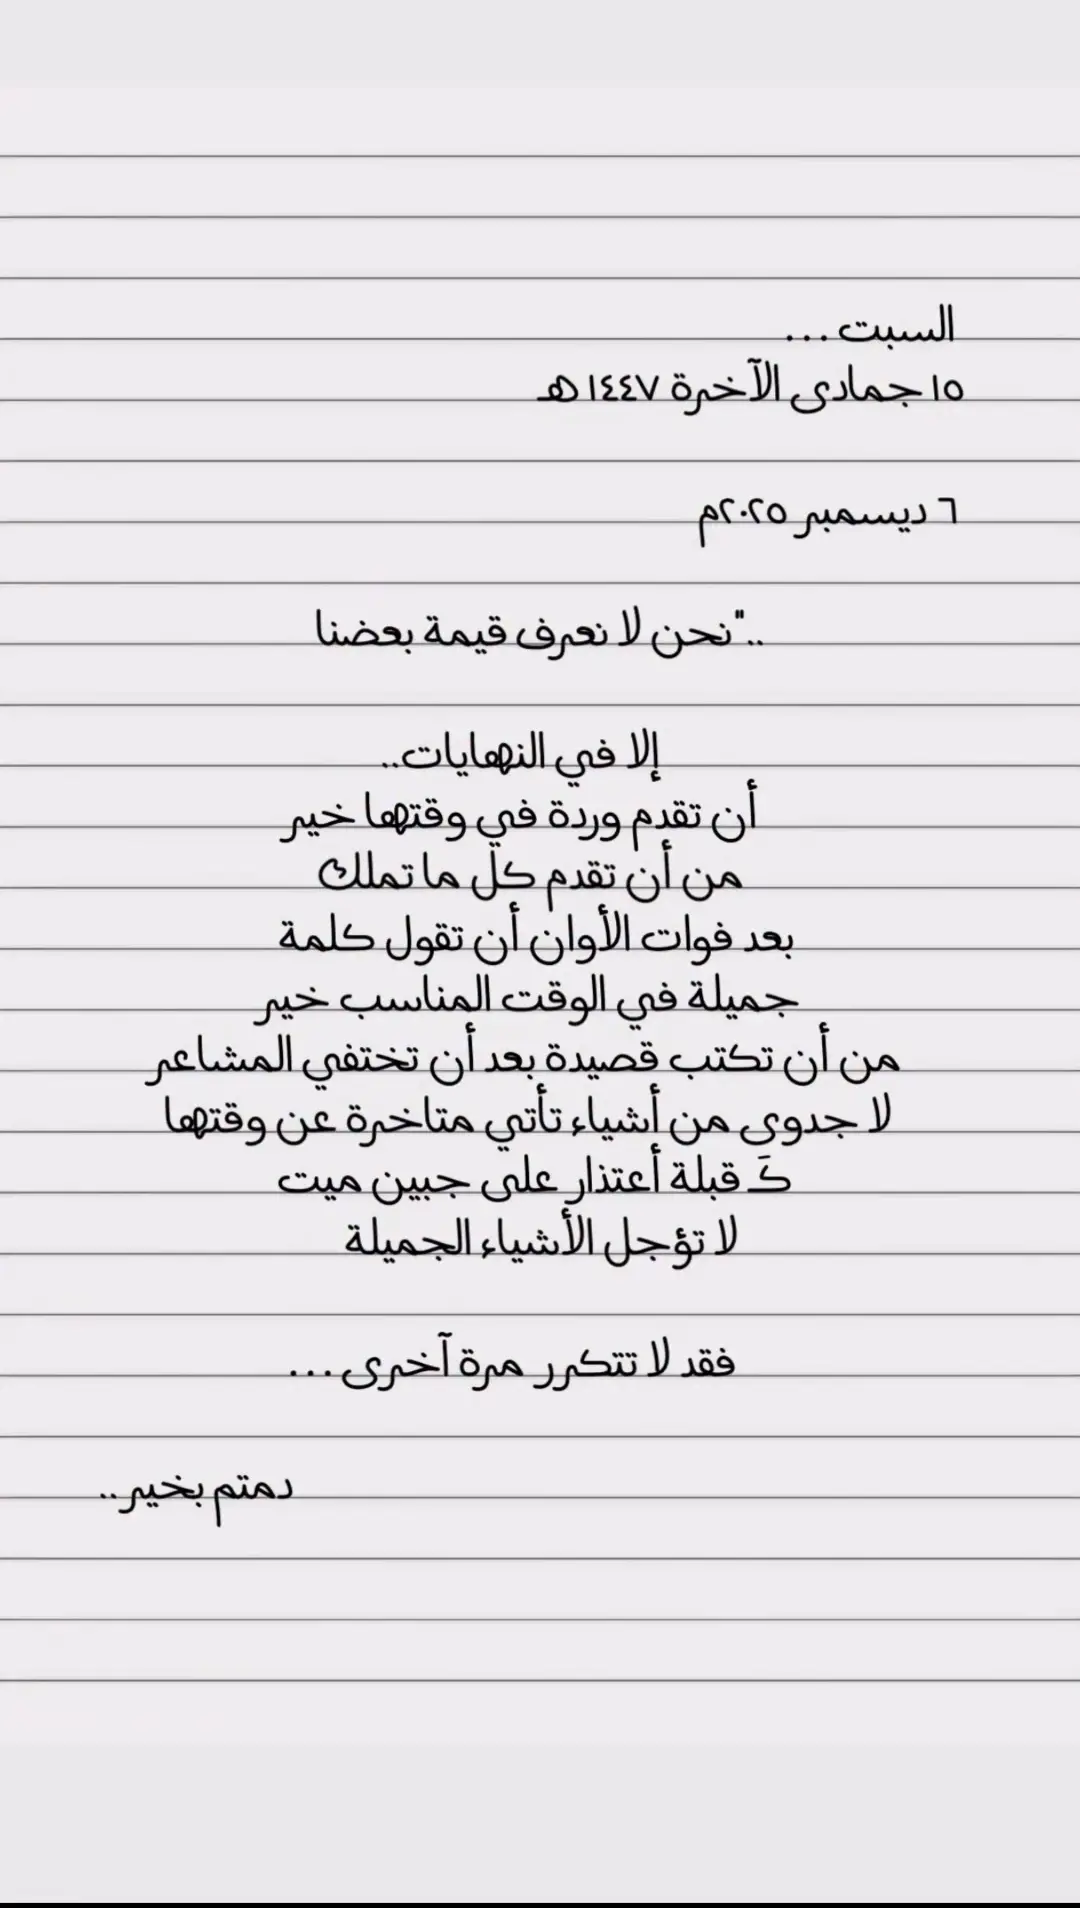 السبت ...
١٥ جمادى الآخرة ١٤٤٧ هـ
٦ ديسمبر ٢٠٢٥م
.."نحن لا نعرف قيمة بعضنا
إلا في النهايات..
أن تقدم وردة في وقتها خير
من أن تقدم كل ما تملك
بعد فوات الأوان أن تقول كلمة
جميلة في الوقت المناسب خير
من أن تكتب قصيدة بعد أن تختفي المشاعر
لا جدوى من أشياء تأتي متاخرة عن وقتها
كَ قبلة أعتذار على جبين ميت
لا تؤجل الأشياء الجميلة
فقد لا تتكرر مرة آخرى ...
دمتم بخير ..